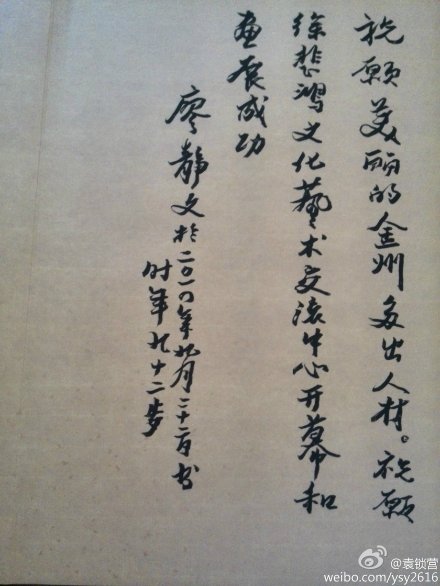 祝愿美丽的金州多出人材。祝愿
徐悲鸿文化艺术交流中心开幕和
画展成功
廖静文於二〇一〇年九月二十二日书
时年九十二岁
@袁锁营
weibo.com/ysy2616